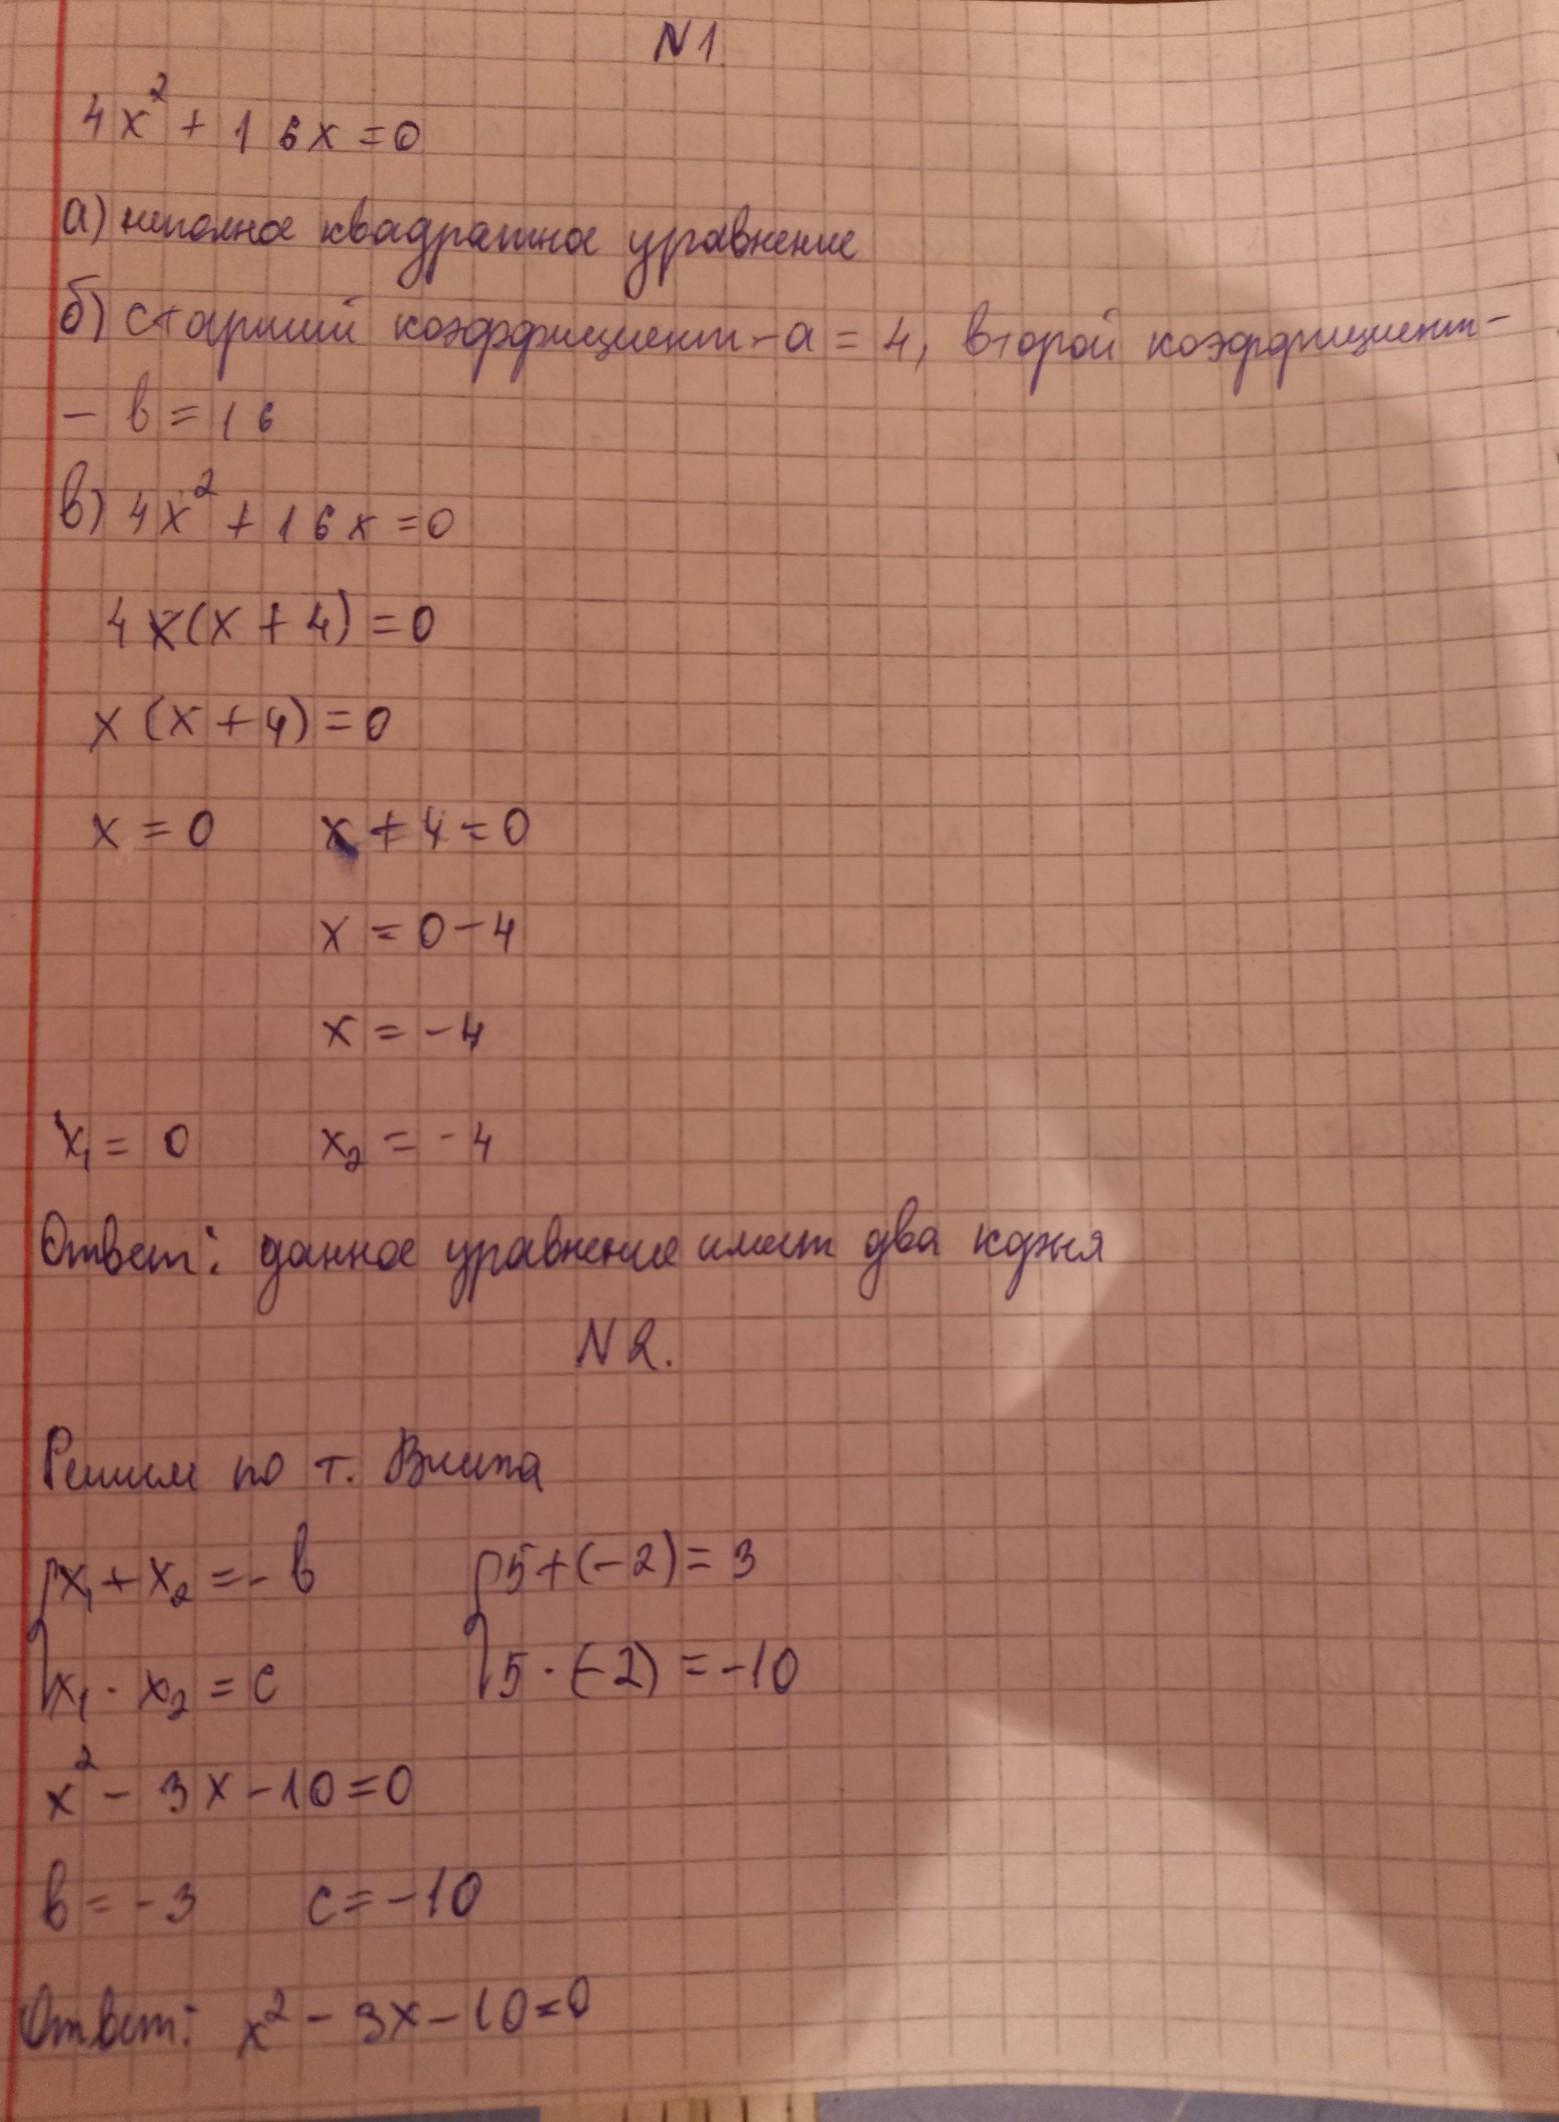 N 1.
4x² + 16x = 0
а) неполное квадратное уравнение
б) старший коэффициент - a = 4, второй коэффициент -
- b = 16
в) 4x² + 16x = 0
4x(x + 4) = 0
x(x + 4) = 0
x = 0 x + 4 = 0
x = 0 - 4
x = -4
x₁ = 0 x₂ = -4
Ответ: данное уравнение имеет два корня
N 2.
Решим по т. Виета
{x₁ + x₂ = -b {5 + (-2) = 3
x₁ · x₂ = c 5 · (-2) = -10
x² - 3x - 10 = 0
b = -3 c = -10
Ответ: x² - 3x - 10 = 0